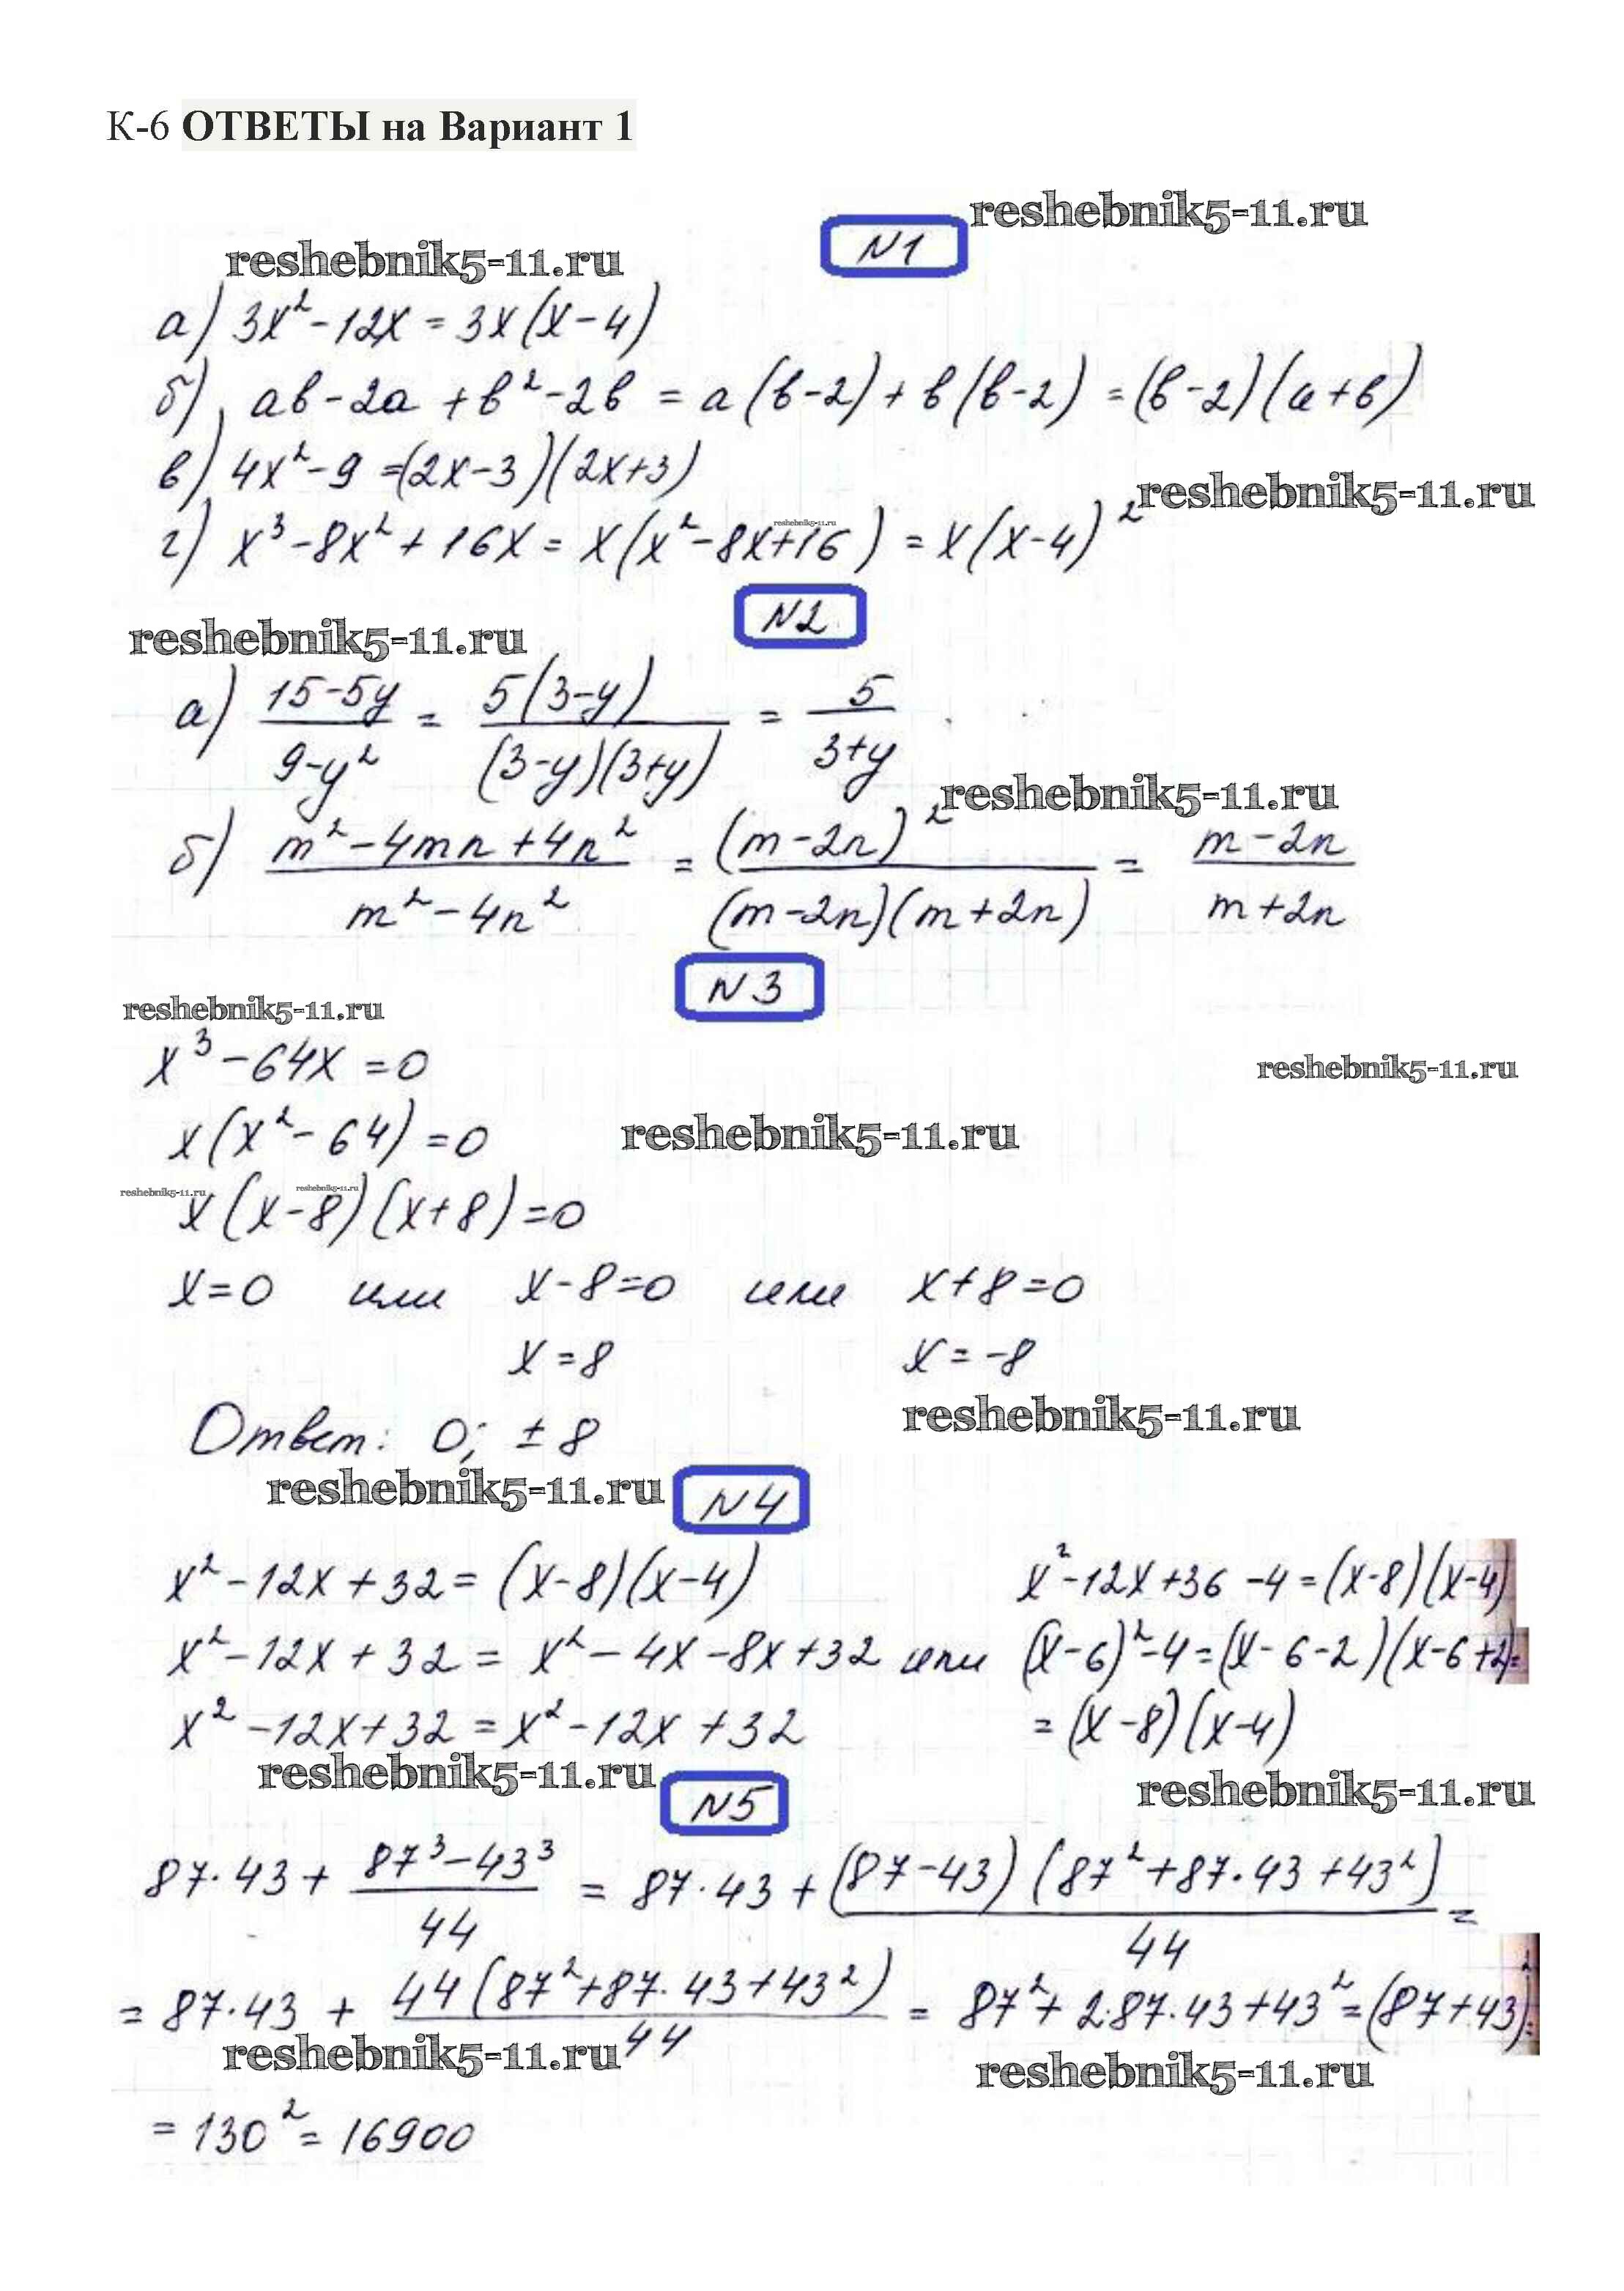 К-6 ОТВЕТЫ на Вариант 1
reshebnik5-11.ru
N1
reshebnik5-11.ru
а) 3x² - 12x = 3x(x - 4)
б) ab - 2a + b² - 2b = a(b - 2) + b(b - 2) = (b - 2)(a + b)
в) 4x² - 9 = (2x - 3)(2x + 3)
reshebnik5-11.ru
reshebnik5-11.ru
г) x³ - 8x² + 16x = x(x² - 8x + 16) = x(x - 4)²
N2
reshebnik5-11.ru
а) (15 - 5y)/(9 - y²) = 5(3 - y)/((3 - y)(3 + y)) = 5/(3 + y)
reshebnik5-11.ru
б) (m² - 4mn + 4n²)/(m² - 4n²) = (m - 2n)²/((m - 2n)(m + 2n)) = (m - 2n)/(m + 2n)
N3
reshebnik5-11.ru
x³ - 64x = 0
reshebnik5-11.ru
x(x² - 64) = 0
reshebnik5-11.ru
reshebnik5-11.ru
reshebnik5-11.ru
x(x - 8)(x + 8) = 0
x = 0 или x - 8 = 0 или x + 8 = 0
x = 8 x = -8
reshebnik5-11.ru
Ответ: 0; ± 8
reshebnik5-11.ru
N4
x² - 12x + 32 = (x - 8)(x - 4) x² - 12x + 36 - 4 = (x - 8)(x - 4)
x² - 12x + 32 = x² - 4x - 8x + 32 или (x - 6)² - 4 = (x - 6 - 2)(x - 6 + 2) =
x² - 12x + 32 = x² - 12x + 32 = (x - 8)(x - 4)
reshebnik5-11.ru
reshebnik5-11.ru
N5
87·43 + (87³ - 43³)/44 = 87·43 + (87 - 43)(87² + 87·43 + 43²)/44 =
= 87·43 + 44(87² + 87·43 + 43²)/44 = 87² + 2·87·43 + 43² = (87 + 43)² =
reshebnik5-11.ru
reshebnik5-11.ru
= 130² = 16900